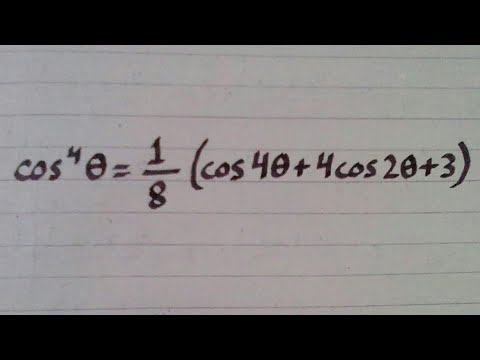 cos⁴θ = 1/8 (cos 4θ + 4 cos 2θ + 3)